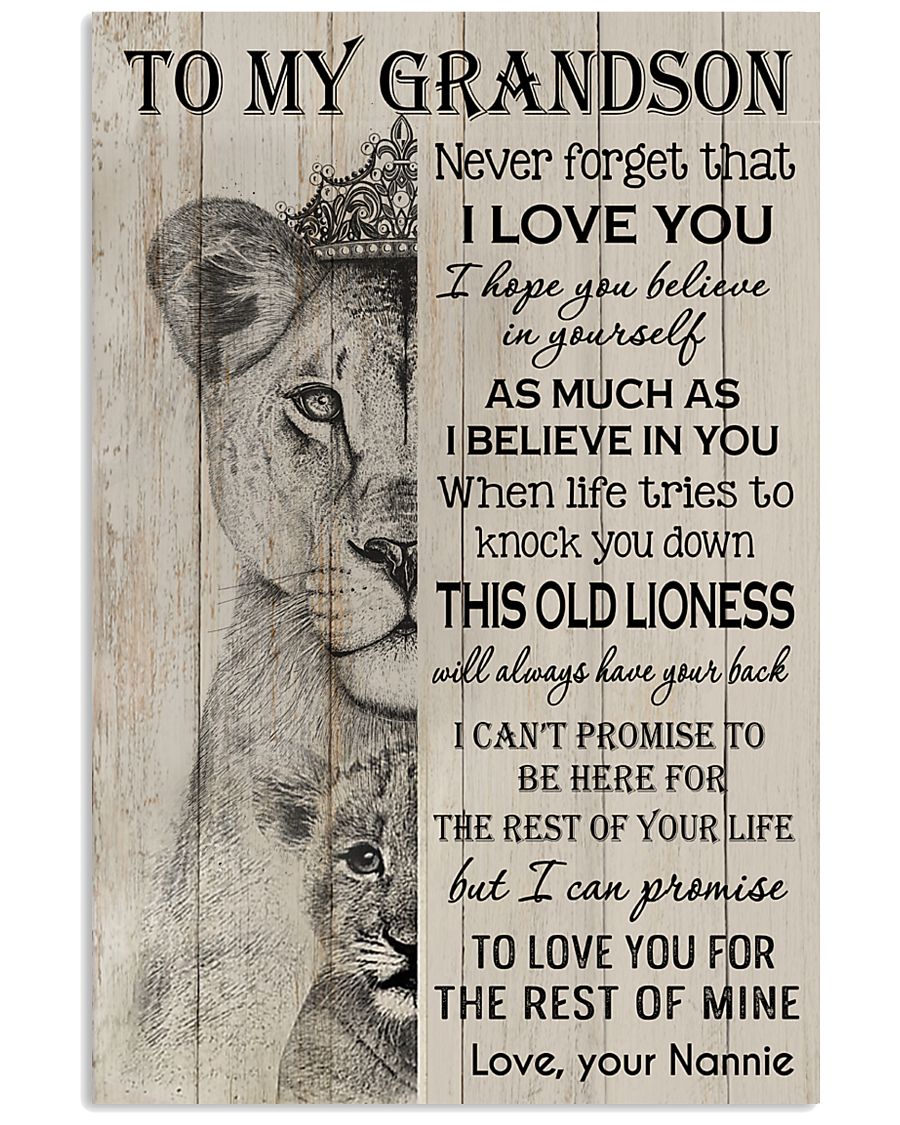 TO MY GRANDSON
Never forget that
I LOVE YOU
I hope you believe
in yourself
AS MUCH AS
I BELIEVE IN YOU
When life tries to
knock you down
THIS OLD LIONESS
will always have your back
I CAN'T PROMISE TO
BE HERE FOR
THE REST OF YOUR LIFE
but I can promise
TO LOVE YOU FOR
THE REST OF MINE
Love, your Nannie